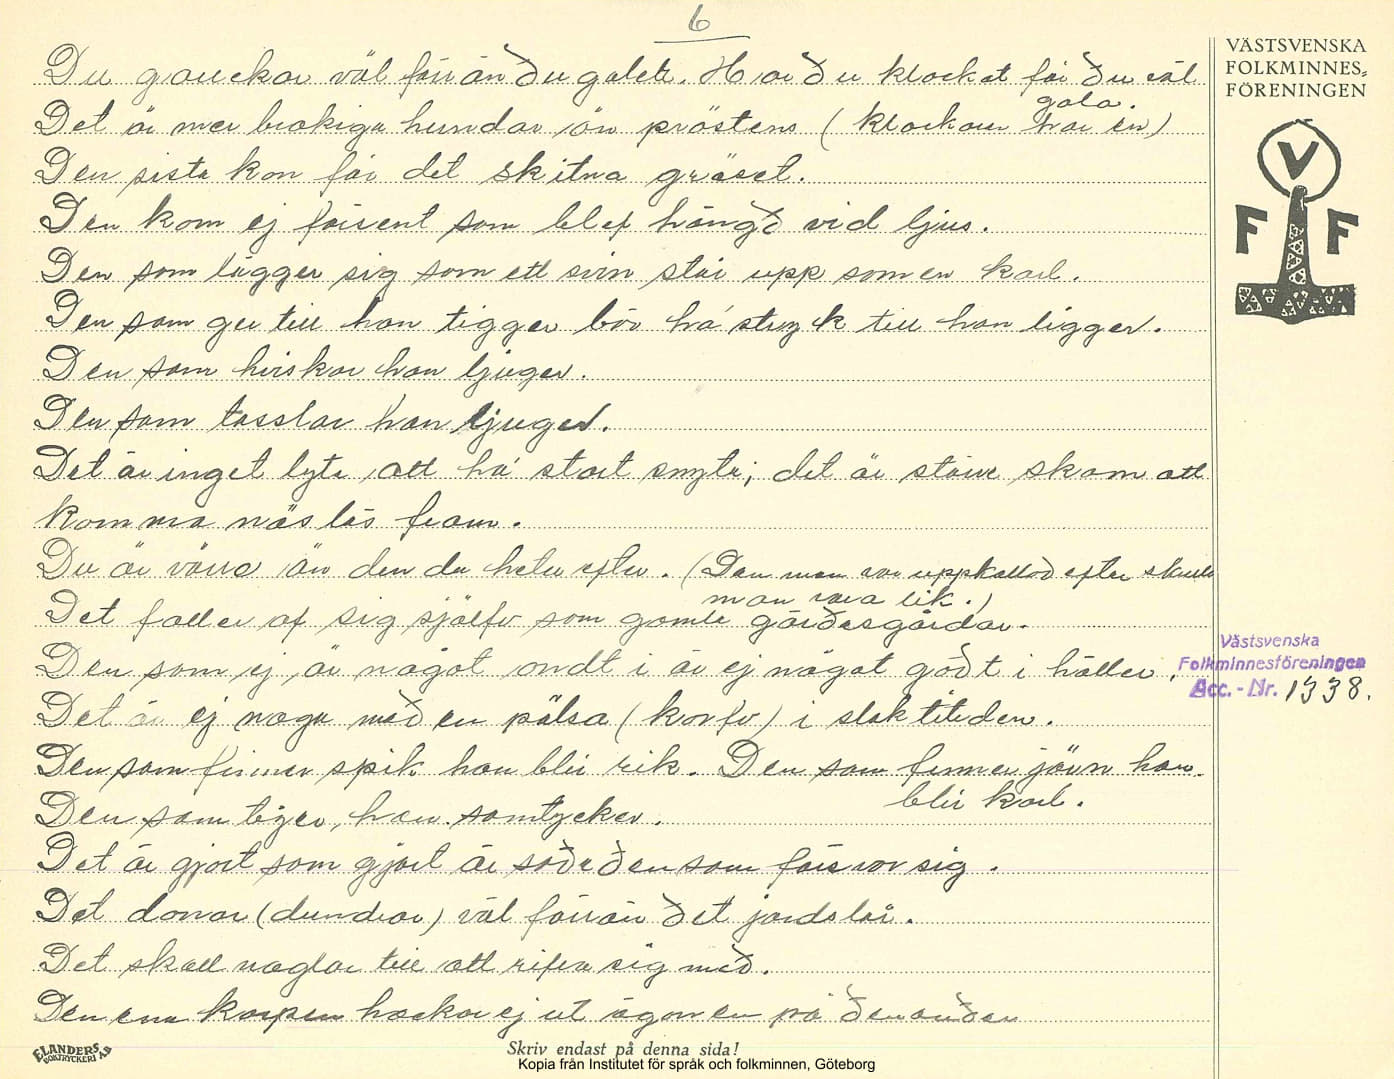 6
Du gauckar väl förrän du galet. Har du klockat får du väl
gala.
Det är mer brokiga hundar än prästens (klockarn har en)
Den sista kon får det skitna gräset.
Den kom ej försent som blef hängd vid ljus.
Den som lägger sig som ett svin står upp som en karl.
Den som ger till han tigger bör ha stryk till han ligger.
Den som hviskar han ljuger.
Den som tasslar han ljuger.
Det är inget lyte att ha stort snyte; det är större skam att
komma näslös fram.
Du är värre än den du heter efter. (Den man var uppkallad efter skulle
man vara lik.)
Det faller af sig själfv som gamle gärdesgårdar.
Den som ej är något ondt i är ej något godt i häller.
Det är ej noga med en pälsa (korfv) i slaktetiden.
Den som finner spik han blir rik. Den som finner järn han
blir karl.
Den som tiger, han samtycker.
Det är gjort som gjort är sade den som försvor sig.
Det donar (dundrar) väl förrän det jordslår.
Det skall naglar till att rifva sig med.
Den ena korpen hackar ej ut ögonen på den andra
VÄSTSVENSKA
FOLKMINNES-
FÖRENINGEN
V
F F
Västsvenska
Folkminnesföreningen
Acc.-Nr. 1338.
ELANDERS
BOKTRYCKERI A.B
Skriv endast på denna sida!
Kopia från Institutet för språk och folkminnen, Göteborg